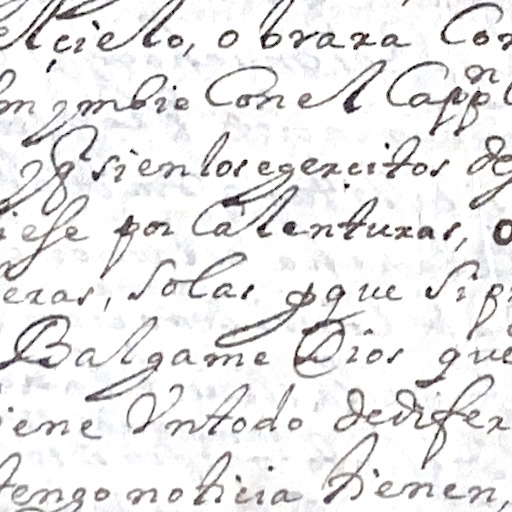 el çielo, obrara Con
ymbie Con el Cappn
y q sienlos egercitos de
iese por Calenturas, o
eras, solas pque si
Balgame Dios que
iene Vntodo dedifer
tengo noticia tienen,